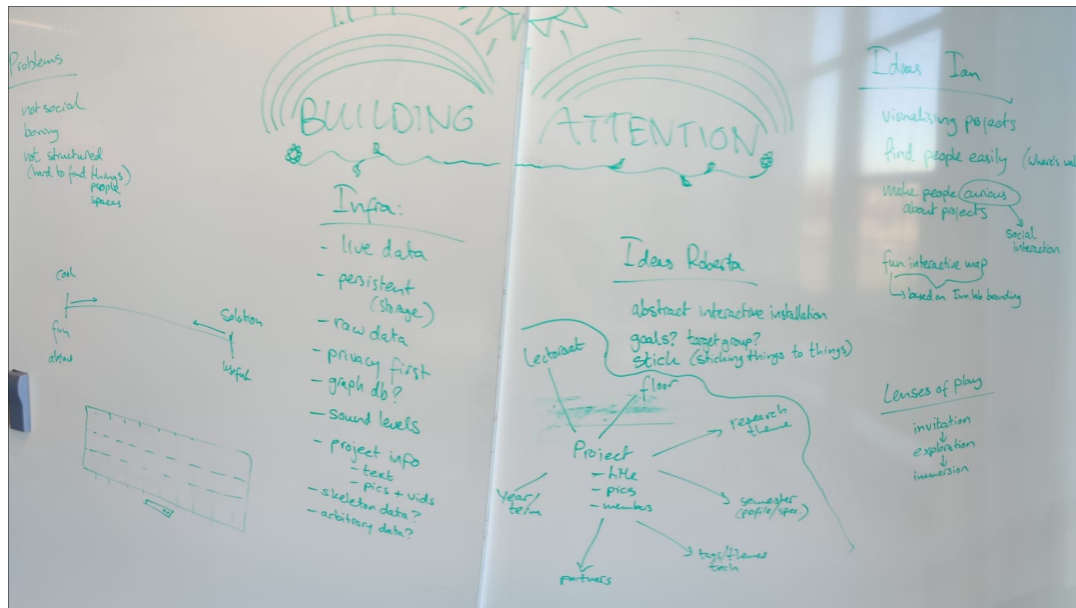 Problems
not social
boring
not structured
(hard to find things)
people
spaces
cool
fun
solution
useful
BUILDING ATTENTION
Infra:
- live data
- persistent
(storage)
- raw data
- privacy first
- graph db?
- sound levels
- project info
- text
- pics + vids
- skeleton data?
- arbitrary data?
Ideas Roberta
abstract interactive installation
goals? target group?
stick (sticking things to things)
Lectoraat
floor
research
theme
Project
- title
- pics
- members
year/
term
semester
(profile/spec.)
tags/themes
tech
partners
Ideas Ian
visualising projects
find people easily (where's
make people curious
about projects
social
interaction
fun interactive map
based on branding
Lenses of play
invitation
exploration
immersion